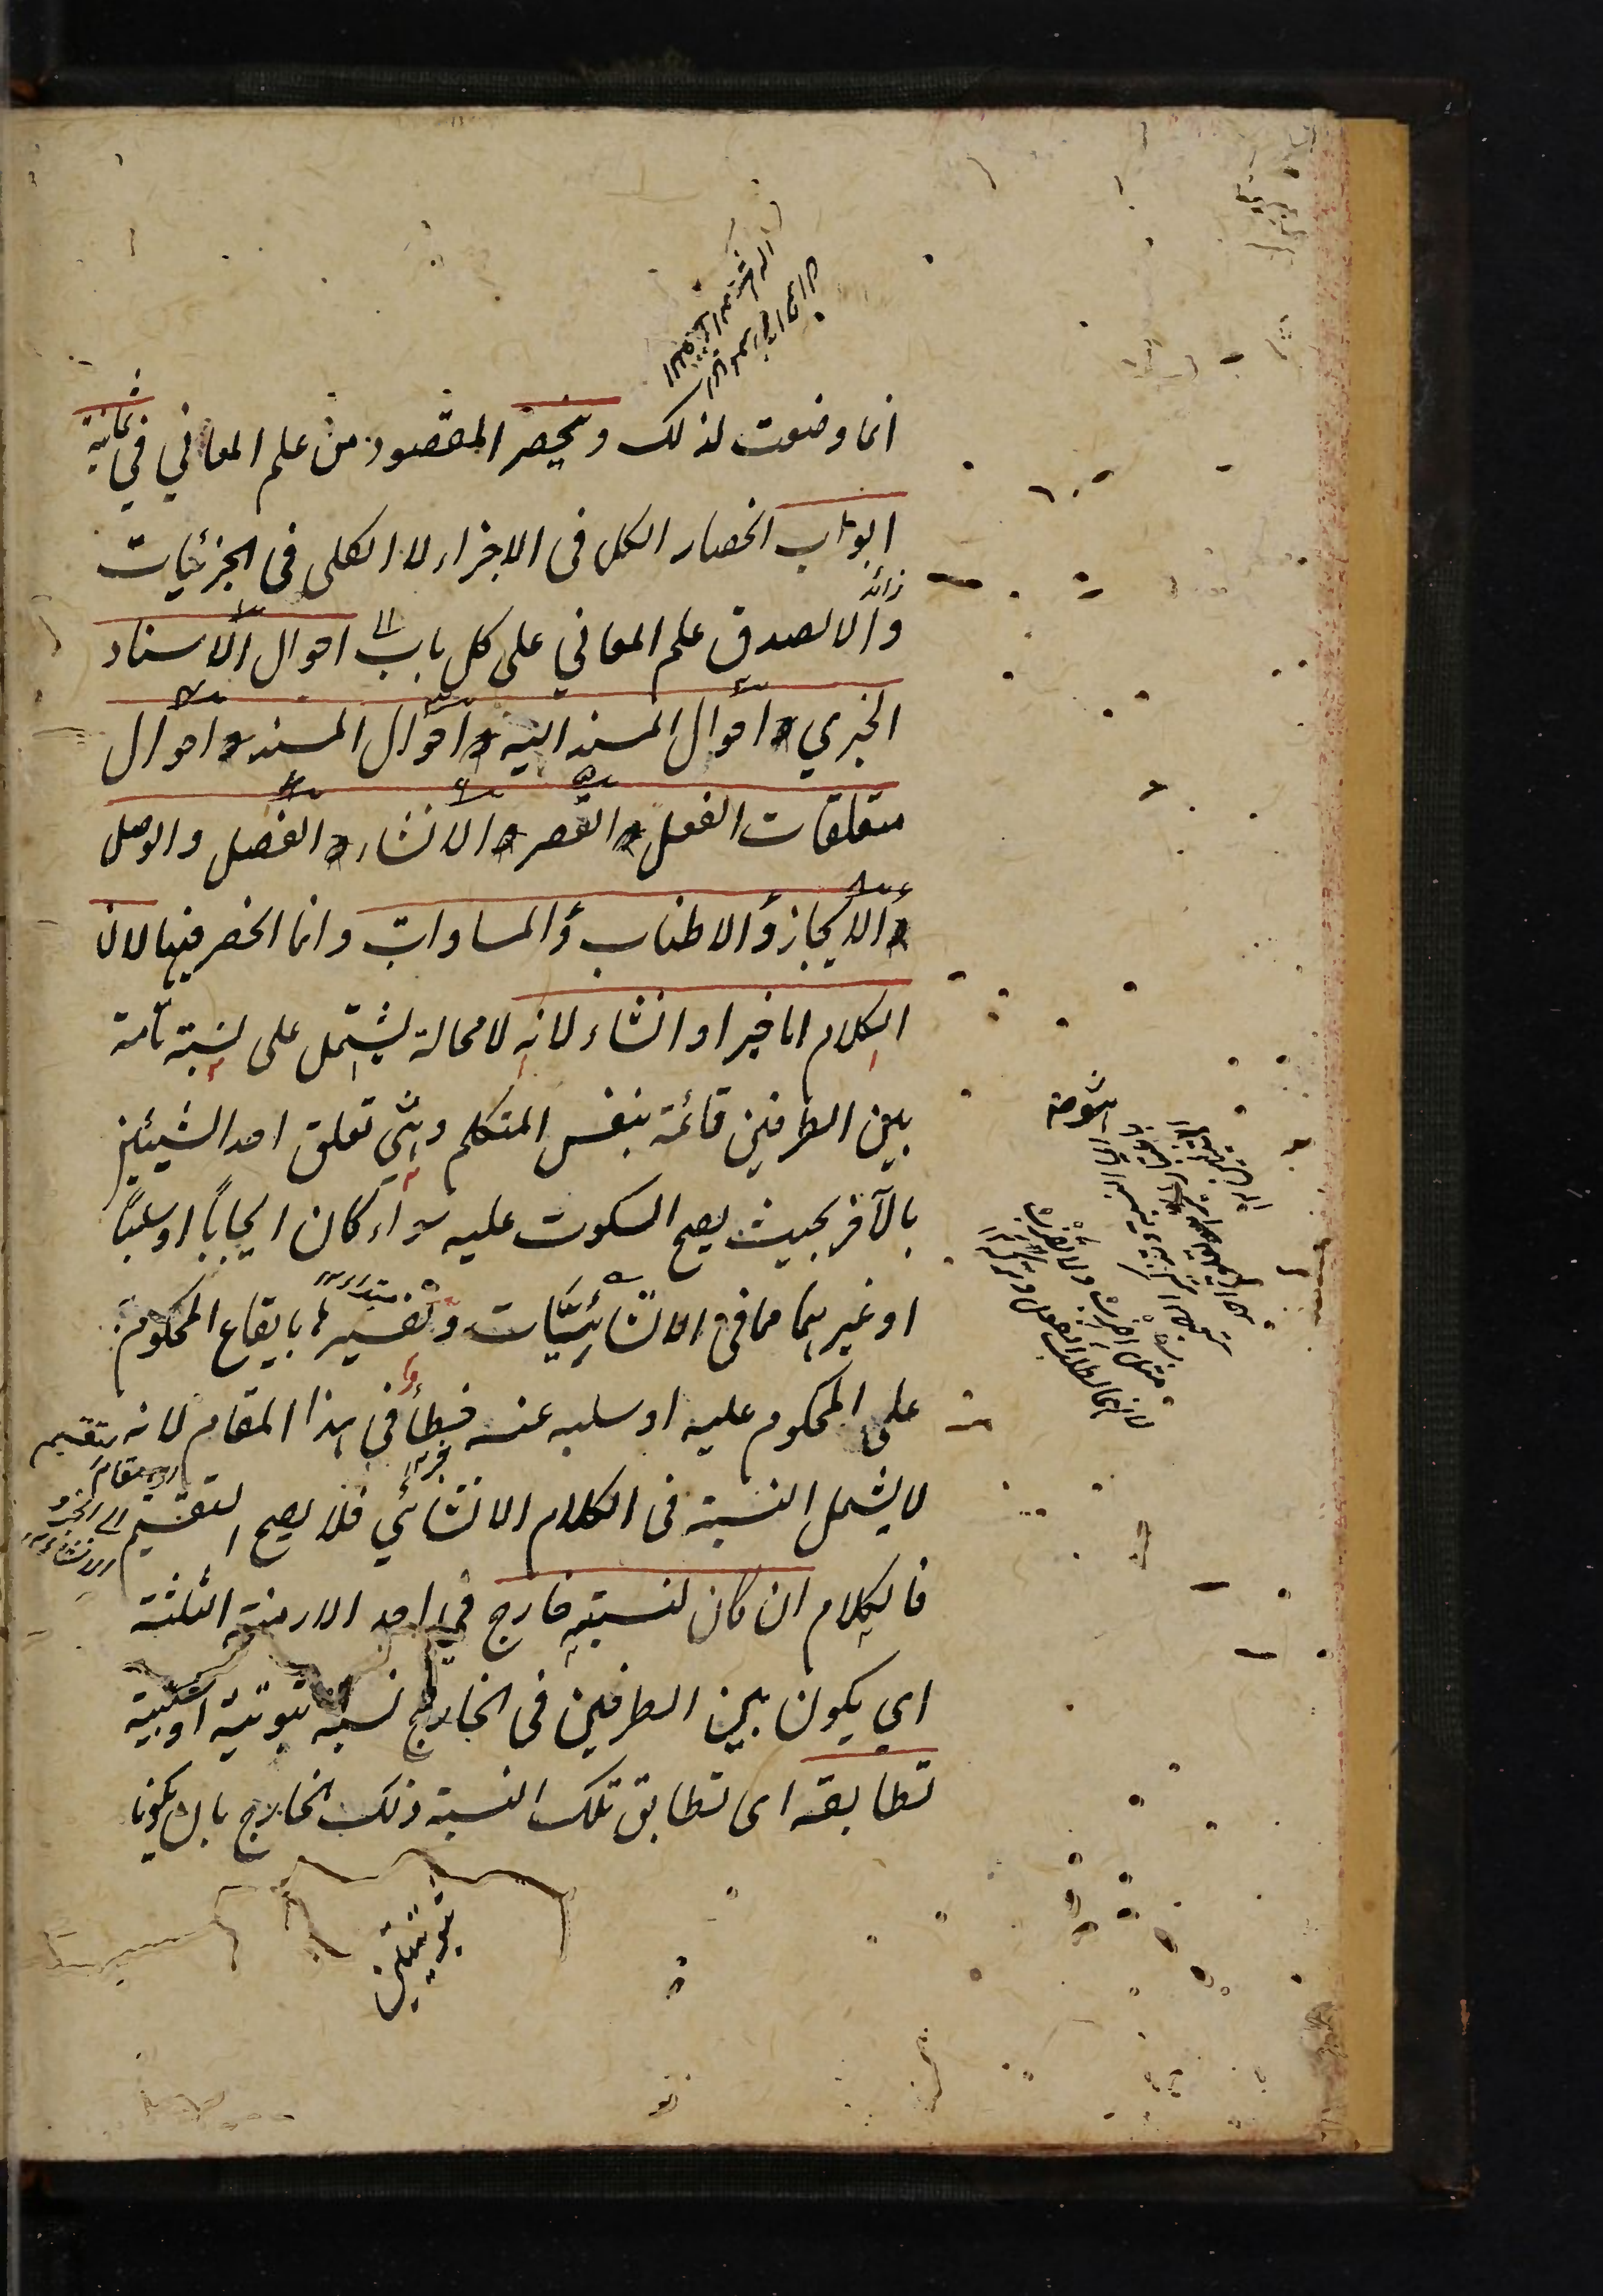 انما وضعت لذلك وينحصر المقصود من علم المعاني في ثمانية
ابواب انحصار الكل في الاجزاء لا الكلي في الجزئيات
والا لصدق علم المعاني على كل باب احوال الاسناد
الخبري و احوال المسند اليه و احوال المسند و احوال
متعلقات الفعل و القصر و الانشاء و الفصل والوصل
و الايجاز و الاطناب و المساوات وانما انحصر فيها لان
الكلام اما خبر او انشاء لانه لا محالة يشتمل على نسبة تامة
بين الطرفين قائمة بنفس المتكلم وهي تعلق احد الشيئين
بالآخر بحيث يصح السكوت عليه سواء كان ايجاباً او سلباً
او غيرهما مما في الانشائيات وتفسيرها بايقاع المحكوم به
على المحكوم عليه او سلبه عنه خطأ في هذا المقام لانه
لا يشمل النسبة في الكلام الانشائي فلا يصح التقسيم
فالكلام ان كان لنسبته خارج في احد الازمنة الثلثة
اي يكون بين الطرفين في الخارج نسبة ثبوتية او سلبية
تطابقه اى تطابق تلك النسبة ذلك الخارج بان يكونا
ثبوتيتين